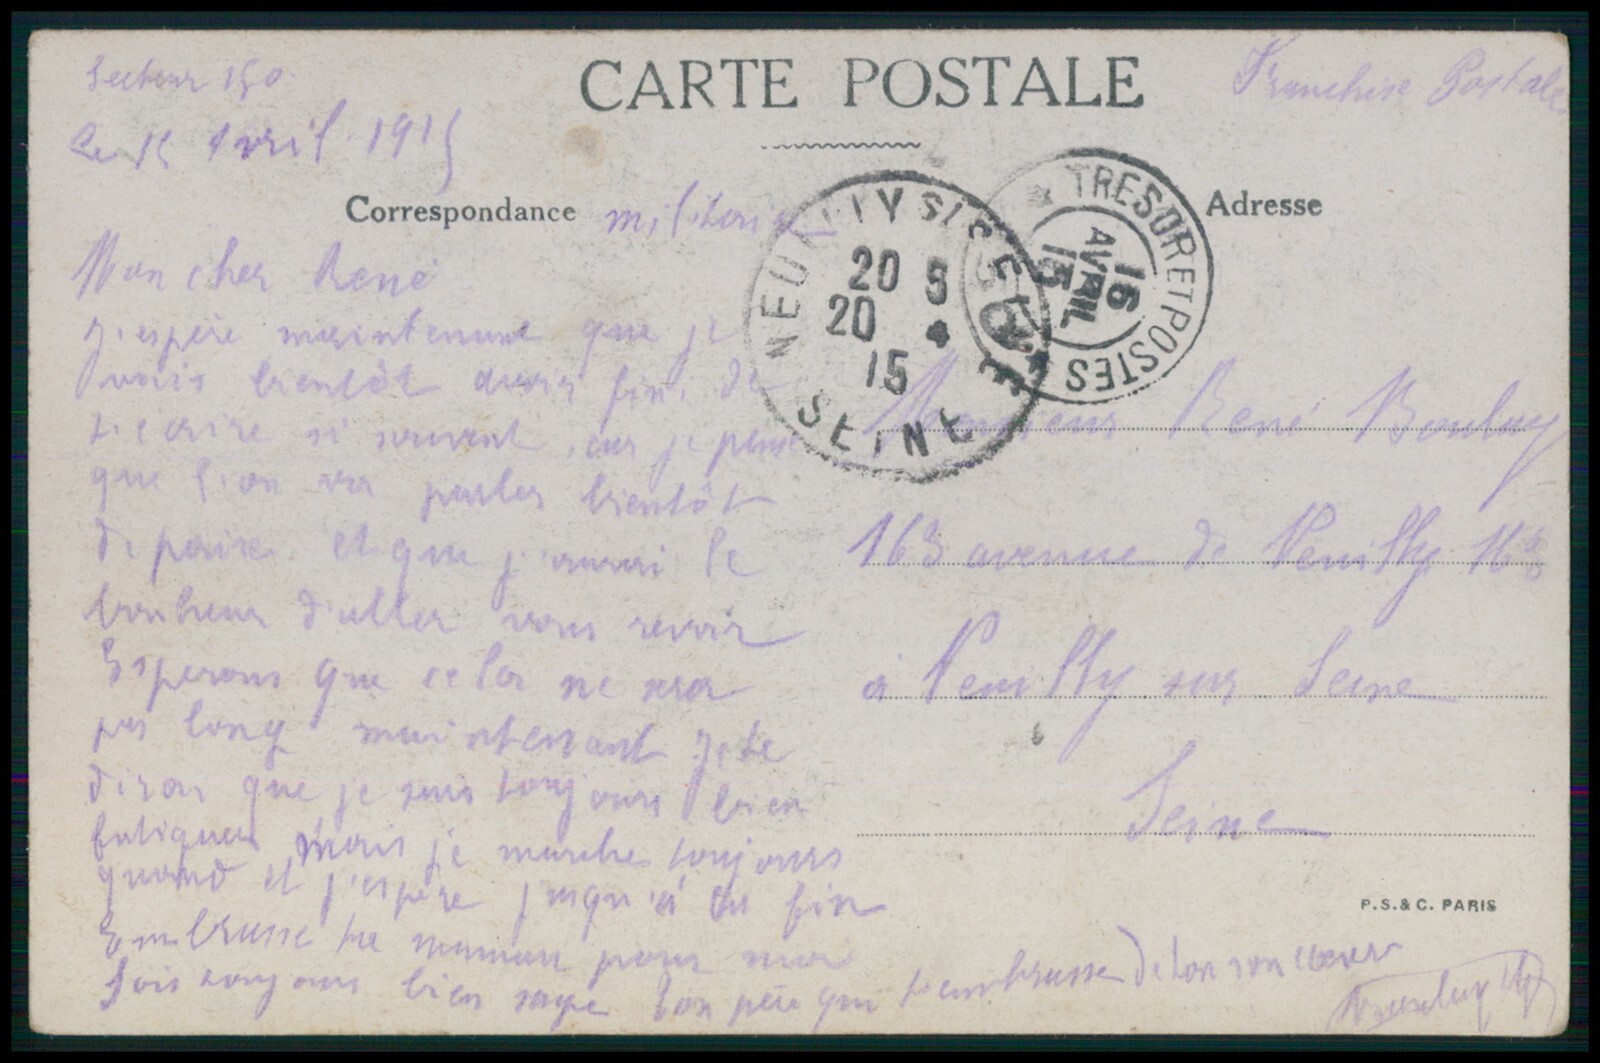 Secteur 150
CARTE POSTALE
Franchise Postale
Le 15 Avril 1915
Correspondance
militaire
Adresse
NEUILLY S/ SEINE
20 S
20 4
15
SEINE
TRESOR ET POSTES
16
AVRIL
15
Mon cher René
J'espère maintenant que je
vais bientôt avoir fini de
t'ecrire si souvent, car je pense
que l'on va parler bientôt
de paix et que j'aurai le
bonheur d'aller vous revoir
Esperons que cela ne sera
pas long maintenant Je te
dirai que je suis toujours bien
fatigué mais je marche toujours
quand et j'espère jusqu'à la fin
Embrasse ta maman pour moi
Sois toujours bien sage Ton père qui t'embrasse de ton son coeur
Boulay
Monsieur René Boulay
163 avenue de Neuilly
à Neuilly sur Seine
Seine
P.S.& C. PARIS